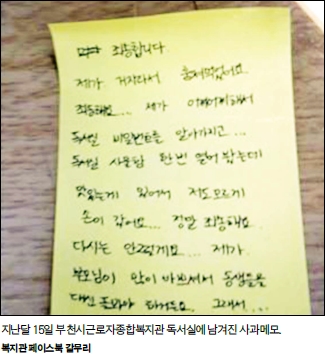 죄송합니다.
제가 거지라서 훔쳐먹었어요
죄송해요... 제가 어찌어찌해서
독서실 비밀번호를 알아가지고...
독서실 사물함 한번 열어 봤는데
맛있는게 있어서 저도모르게
손이 갔어요... 정말 죄송해요.
다시는 안그럴게요... 제가.
부모님이 많이 바쁘셔서 동생들을
대신 돌봐야 하거든요. 그래서...
지난달 15일 부천시근로자종합복지관 독서실에 남겨진 사과메모.
복지관 페이스북 갈무리